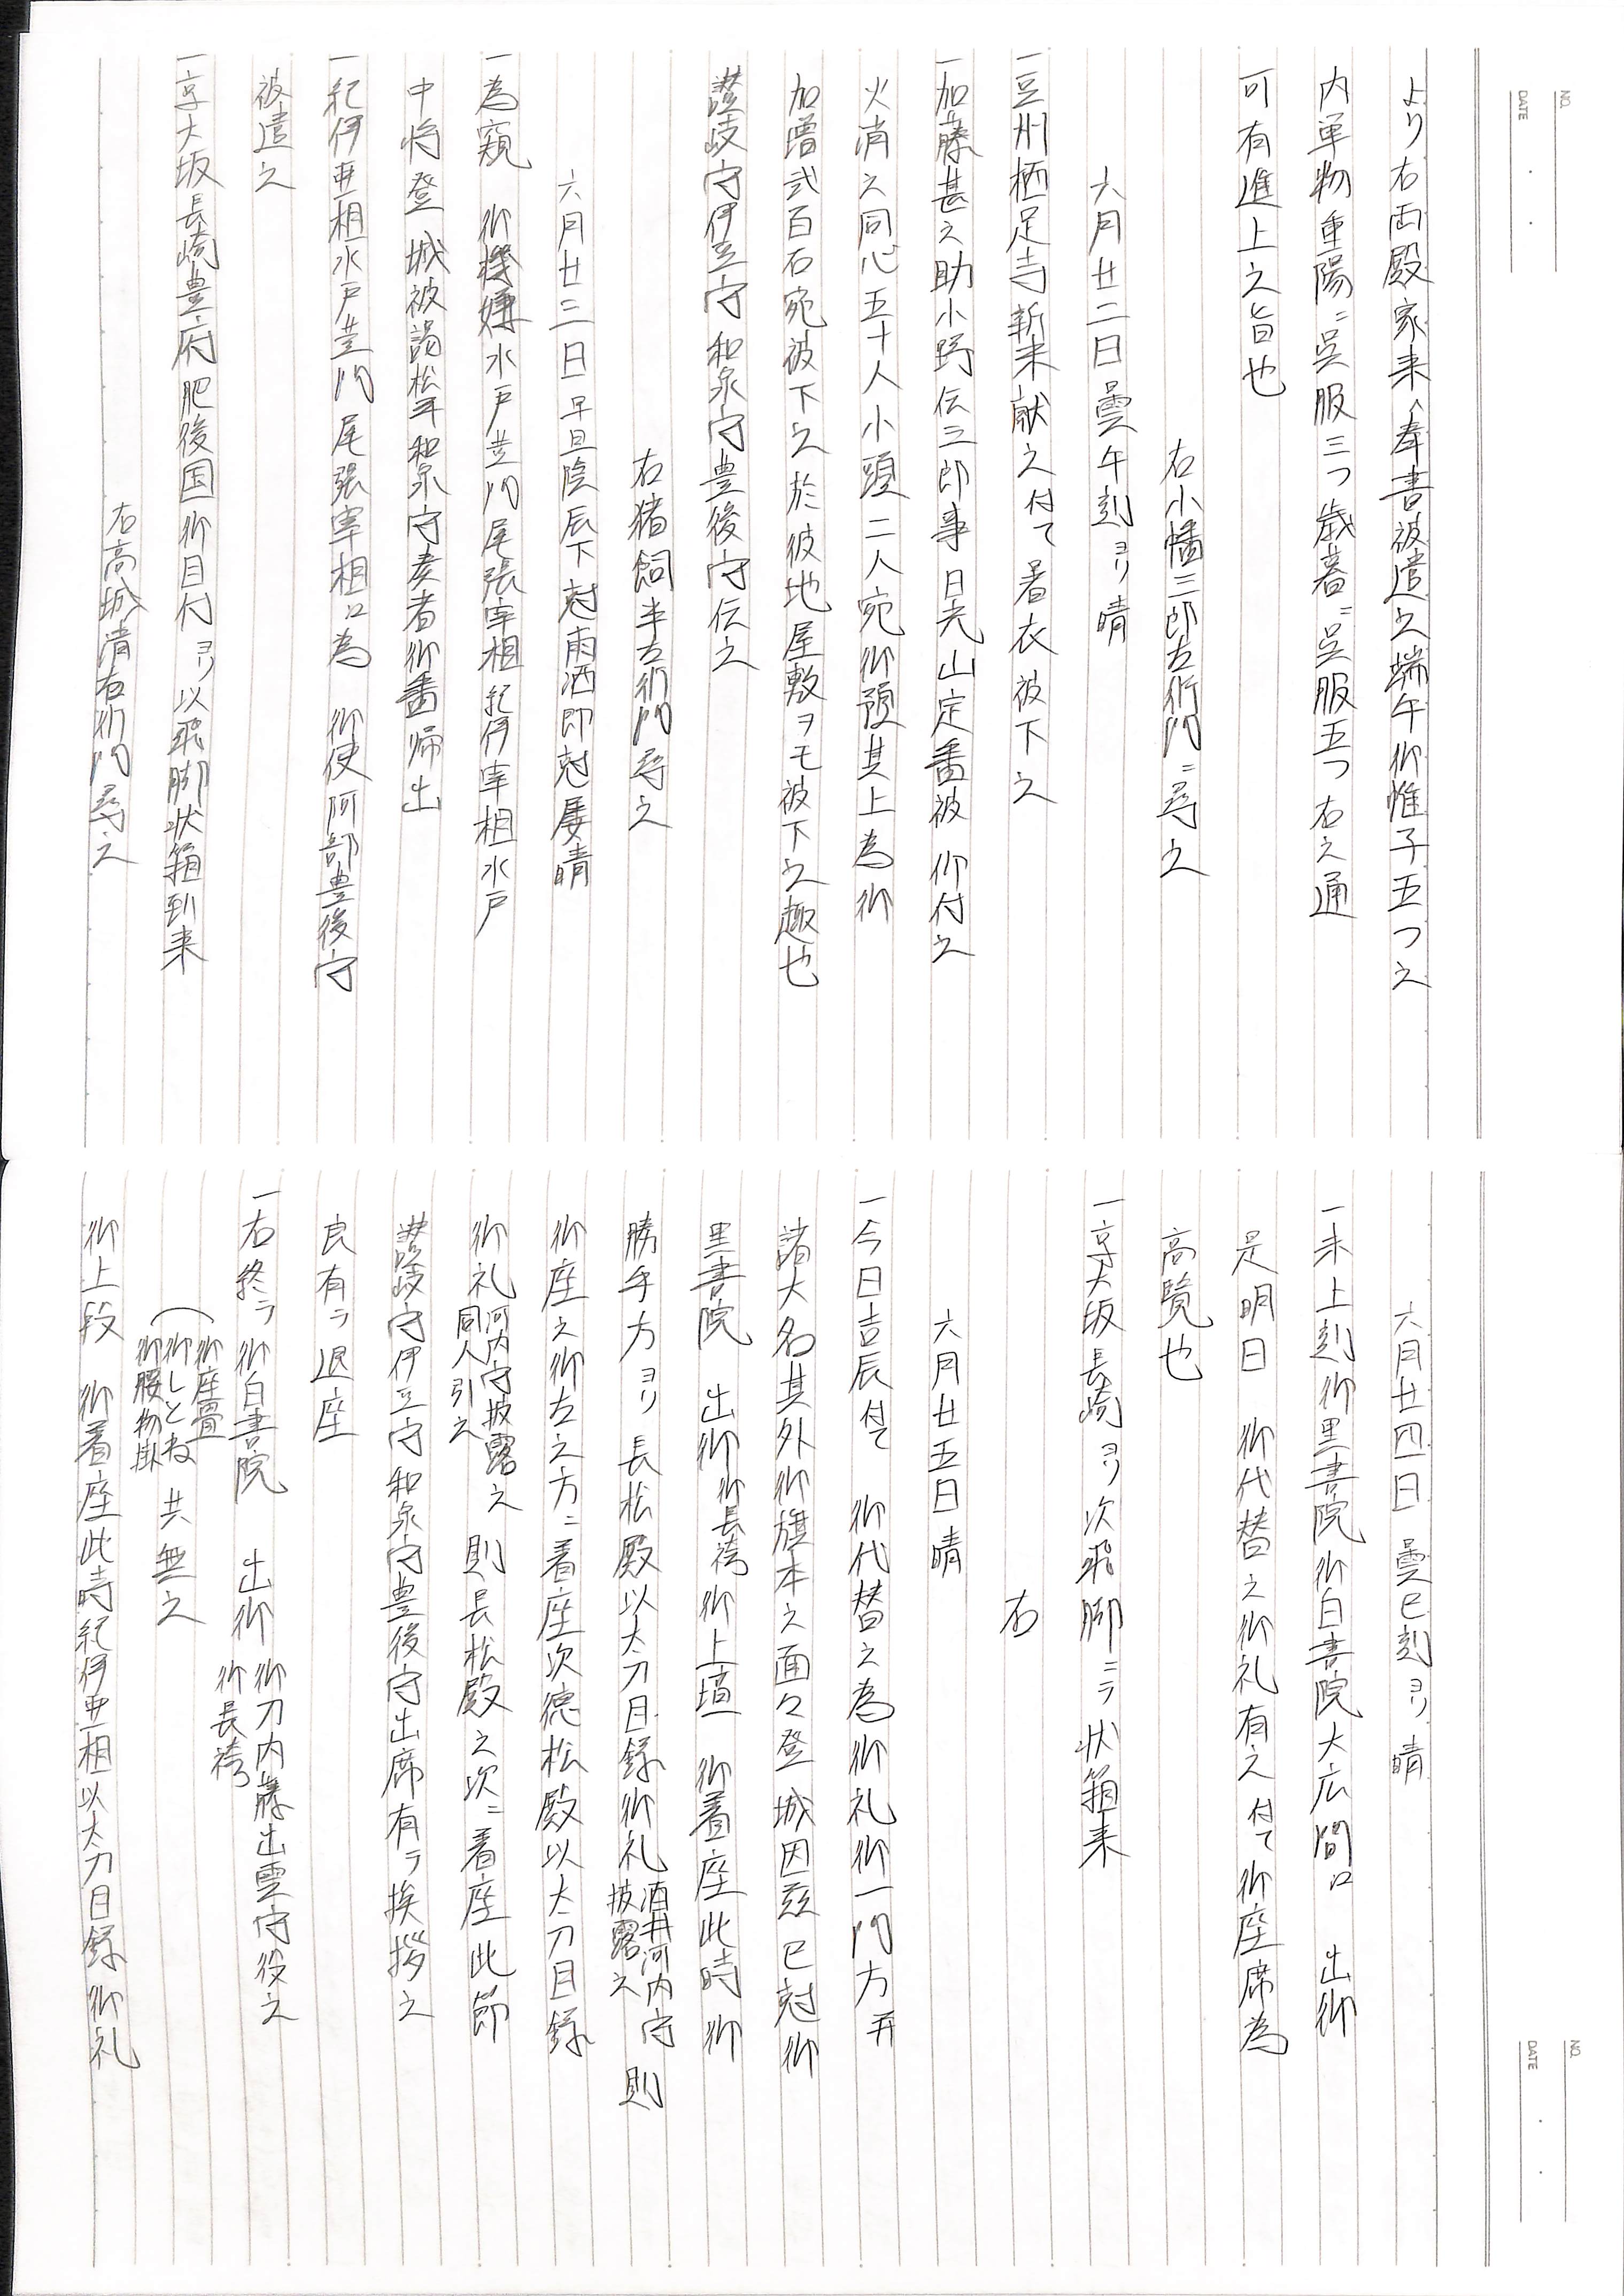 NO.
DATE
より右両殿家来へ奉書被遣之端午御惟子五つ之
内単物重陽ニ呉服三つ歳暮ニ呉服五つ右之通
可有進上之旨也
右小幡三郎左衛門ニ尋之
六月廿二日曇午刻ヨリ晴
一豆州栖足寺新来献之付て暑衣被下之
一加藤甚之助小野伝三郎事日光山定番被 御付之
火消之同心五十人小頭二人宛御預其上為御
加増弐百石宛被下之於彼地屋敷ヲモ被下之趣也
讃岐守伊豆守和泉守豊後守伝之
右猪飼半左衛門尋之
六月廿三日早旦陰辰下尅雨洒即尅属晴
一為窺 御機嫌水戸黄門尾張宰相紀伊宰相水戸
中将登 城被謁松平和泉守奏者御番帰出
一紀伊亜相水戸黄門尾張宰相江為 御使阿部豊後守
被遣之
一京大坂長崎豊府肥後国御目付ヨリ以飛脚状箱到来
右高城清右衛門尋之
NO.
DATE
六月廿四日 曇巳刻ヨリ晴
一未上刻御黒書院御白書院大広間江 出御
是明日 御代替之御礼有之付て御座席為
高覧也
一京大坂長崎ヨリ次飛脚ニテ状箱来
右
六月廿五日晴
一今日吉辰付て 御代替之為御礼御一門方并
諸大名其外御旗本之面々登 城因茲巳尅御
黒書院 出御 御長袴 御上壇 御着座此時御
勝手方ヨリ 長松殿以太刀目録御礼 酒井河内守披露之 則
御座之御左之方ニ着座次徳松殿以太刀目録
御礼 河内守披露之同人引之 則長松殿之次ニ着座此節
讃岐守伊豆守和泉守豊後守出席有テ挨拶之
良有テ退座
一右終テ御白書院 出御 御刀内藤出雲守役之 御長袴
(御座畳 御しとね 御腰物掛 共無之
御上段 御着座此時紀伊亜相以太刀目録御礼